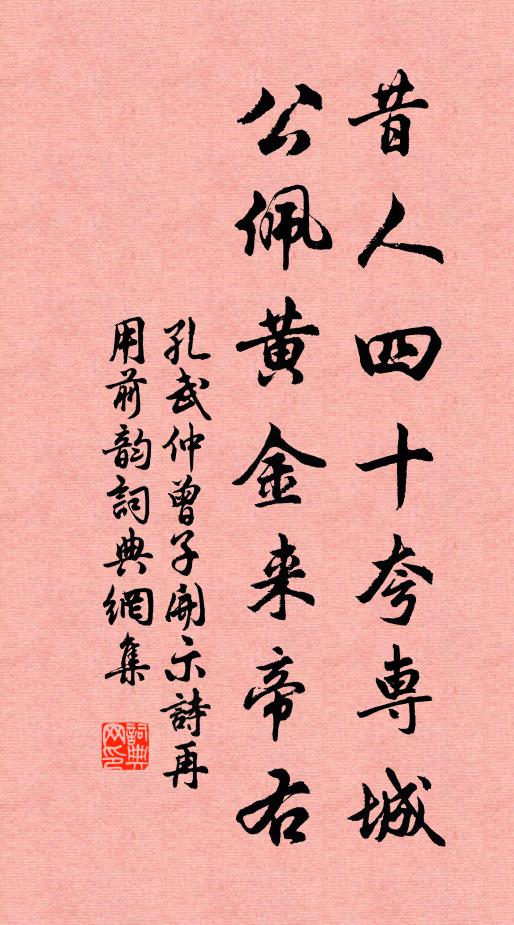 昔人四十夸専城
公佩黄金来帝右
孔武仲曾子開示詩再
用前韵詞典網集
詞典
网印